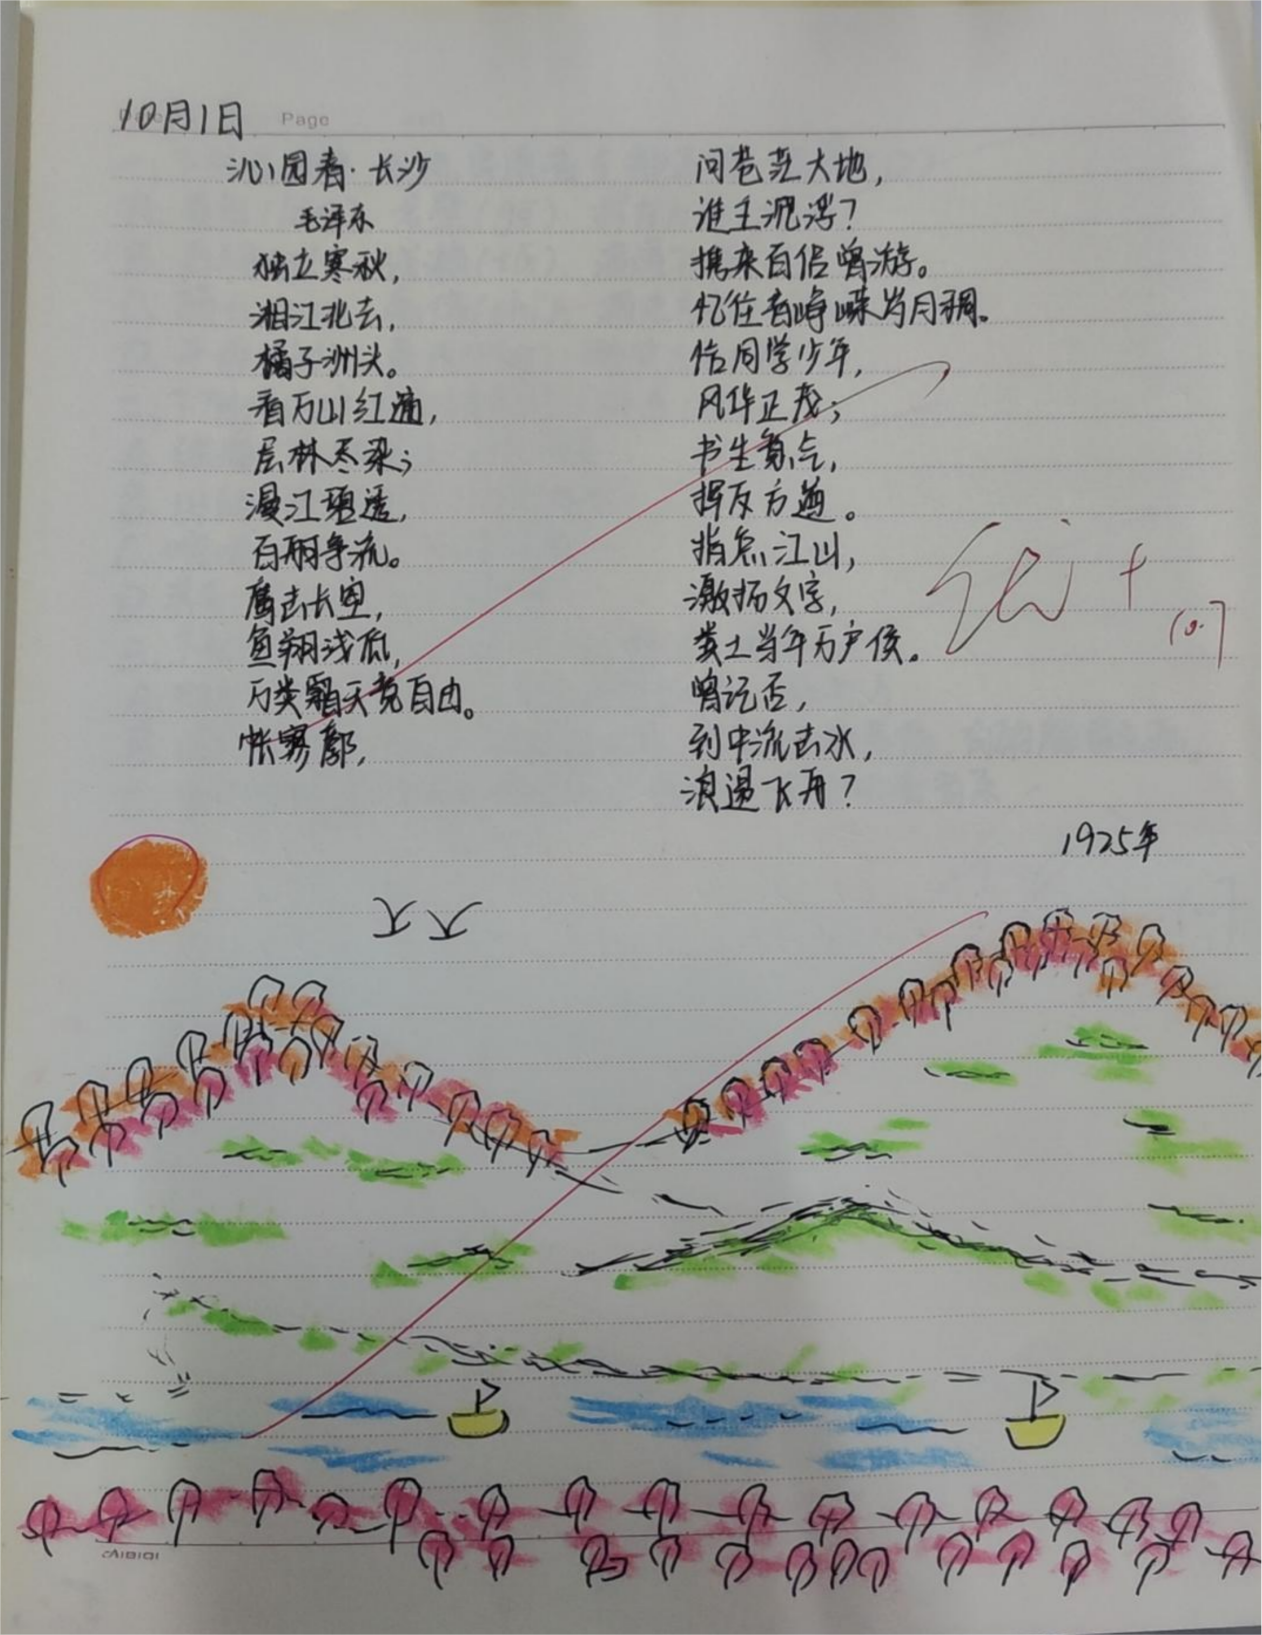 10月1日
Page
沁园春·长沙
毛泽东
独立寒秋,
湘江北去,
橘子洲头。
看万山红遍,
层林尽染;
漫江碧透,
百舸争流。
鹰击长空,
鱼翔浅底,
万类霜天竞自由。
怅寥廓,
问苍茫大地,
谁主沉浮?
携来百侣曾游。
忆往昔峥嵘岁月稠。
恰同学少年,
风华正茂;
书生意气,
挥斥方遒。
指点江山,
激扬文字,
粪土当年万户侯。
曾记否,
到中流击水,
浪遏飞舟?
1925年
优+
10.7